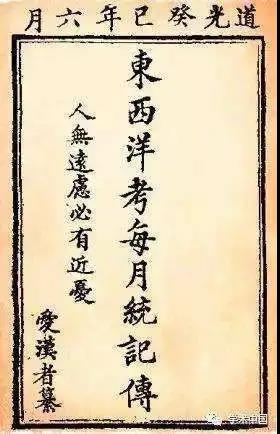 道光癸巳年六月
東西洋考每月統記傳
人無遠慮必有近憂
愛漢者纂
学术中国